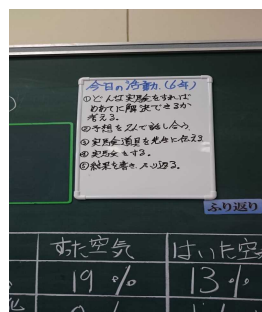 今日の活動（6年）
①どんな実験をすれば
めあてに解決できるか
考える。
②予想を2人で話し合う
③実験道具を先生に伝える
④実験をする。
⑤結果を書き、ふり返る。
ふり返り
すった空気
はいた空
19 %
13 %